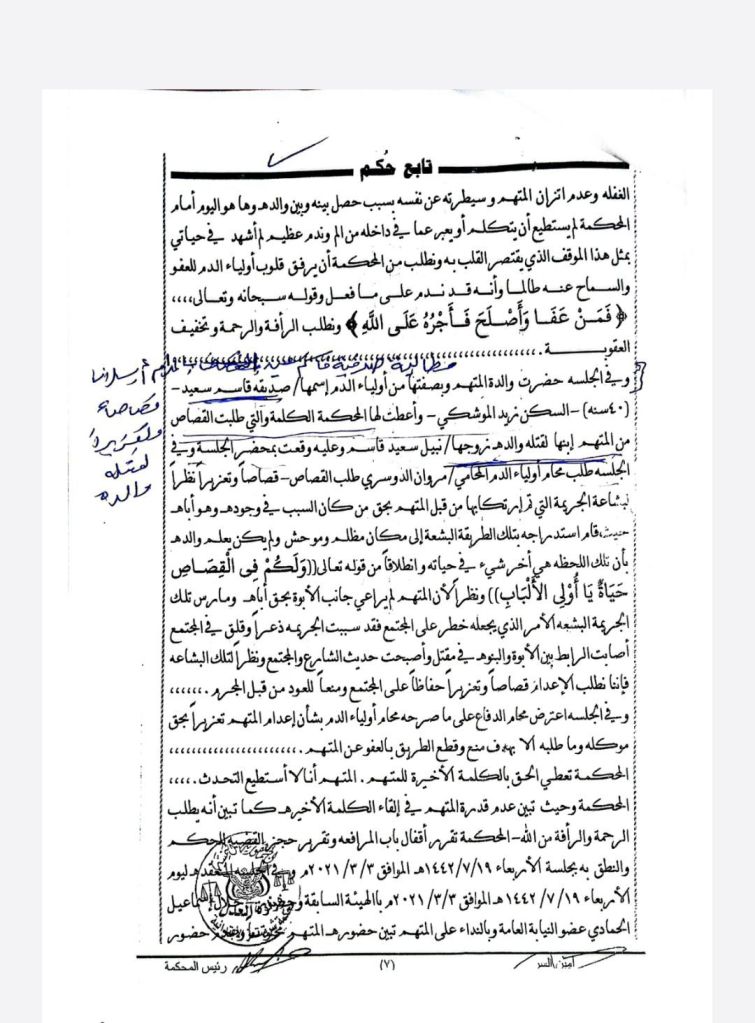 تابع حكم
الغفله وعدم اتزان المتهم وسيطرته عن نفسه بسبب حصل بينه وبين والده وها هو اليوم أمام
المحكمة لم يستطيع أن يتكلم أو يعبر عما في داخله من الم وندم عظيم لم أشهد في حياتي
بمثل هذا الموقف الذي يقتصر القلب به ونطلب من المحكمة أن يرفق قلوب أولياء الدم للعفو
والسماح عنه طالما وأنه قد ندم على ما فعل وقوله سبحانه وتعالى,,,,
﴿ فَمَنْ عَفَا وَأَصْلَحَ فَأَجْرُهُ عَلَى اللَّهِ ﴾ ونطلب الرأفة والرحمة وتخفيف
العقوبة
مطالبة صديقة قاسم
قصاصا
وتعزيرا
لقتله
والده
وفي الجلسه حضرت والدة المتهم وبصفتها من أولياء الدم إسمها/ صديقه قاسم سعيد-
(٤٠سنه)-السكن نريد الموشكي- وأعطت لها المحكمة الكلمة والتي طلبت القصاص
من المتهم إبنها لقتله والده نروجها/ نبيل سعيد قاسم وعليه وقعت بمحضر الجلسة وفي
الجلسه طلب محام أولياء الدم المحامي/ مروان الدوسري طلب القصاص-قصاصاً وتعزيراً نظراً
لبشاعة الجريمة التي تم إرتكابها من قبل المتهم بحق من كان السبب في وجوده وهو أباه
حيث قام استدراجه بتلك الطريقة البشعة إلى مكان مظلم وموحش ولم يكن يعلم والده
بأن تلك اللحظه هي أخر شيء في حياته وانطلاقاً من قوله تعالى((وَلَكُمْ فِي الْقِصَاصِ
حَيَاةٌ يَا أُوْلِي الأَلْبَابِ)) ونظراً لأن المتهم لم يراعي جانب الأبوة بحق أباه ومارس تلك
الجريمة البشعه الأمر الذي يجعله خطر على المجتمع فقد سببت الجريمه ذعراً وقلق في المجتمع
أصابت الرابط بين الأبوة والبنوه في مقتل وأصبحت حديث الشارع والمجتمع ونظراً لتلك البشاعه
فإننا نطلب الإعدام قصاصاً وتعزيراً حفاظاً على المجتمع ومنعاً للعود من قبل المجرم.,,,,,,
وفي الجلسه اعترض محام الدفاع على ما صرحه محام أولياء الدم بشأن إعدام المتهم تعزيراً بحق
موكله وما طلبه الا بهدف منع وقطع الطريق بالعفو عن المتهم.
المحكمة تعطي الحق بالكلمة الأخيرة للمتهم. المتهم أنا لا أستطيع التحدث.,,,,
المحكمة وحيث تبين عدم قدرة المتهم في إلقاء الكلمة الأخيره كما تبين أنه يطلب
الرحمة والرأفة من الله-المحكمة تقرر أقفال باب المرافعه وتقرير حجز القضية للحكم
والنطق به بجلسة الأربعاء ١٤٤٢/٧/١٩هـ الموافق ٢٠٢١/٣/٣م وفي ليوم
الأربعاء ١٤٤٢/٧/١٩هـ الموافق ٢٠٢١/٣/٣م بالهيئة السابقة إسماعيل
الحمادي عضو النيابة العامة وبالنداء على المتهم تبين حضوره المتهم حضور
أمين السر
(٧)
رئيس المحكمة